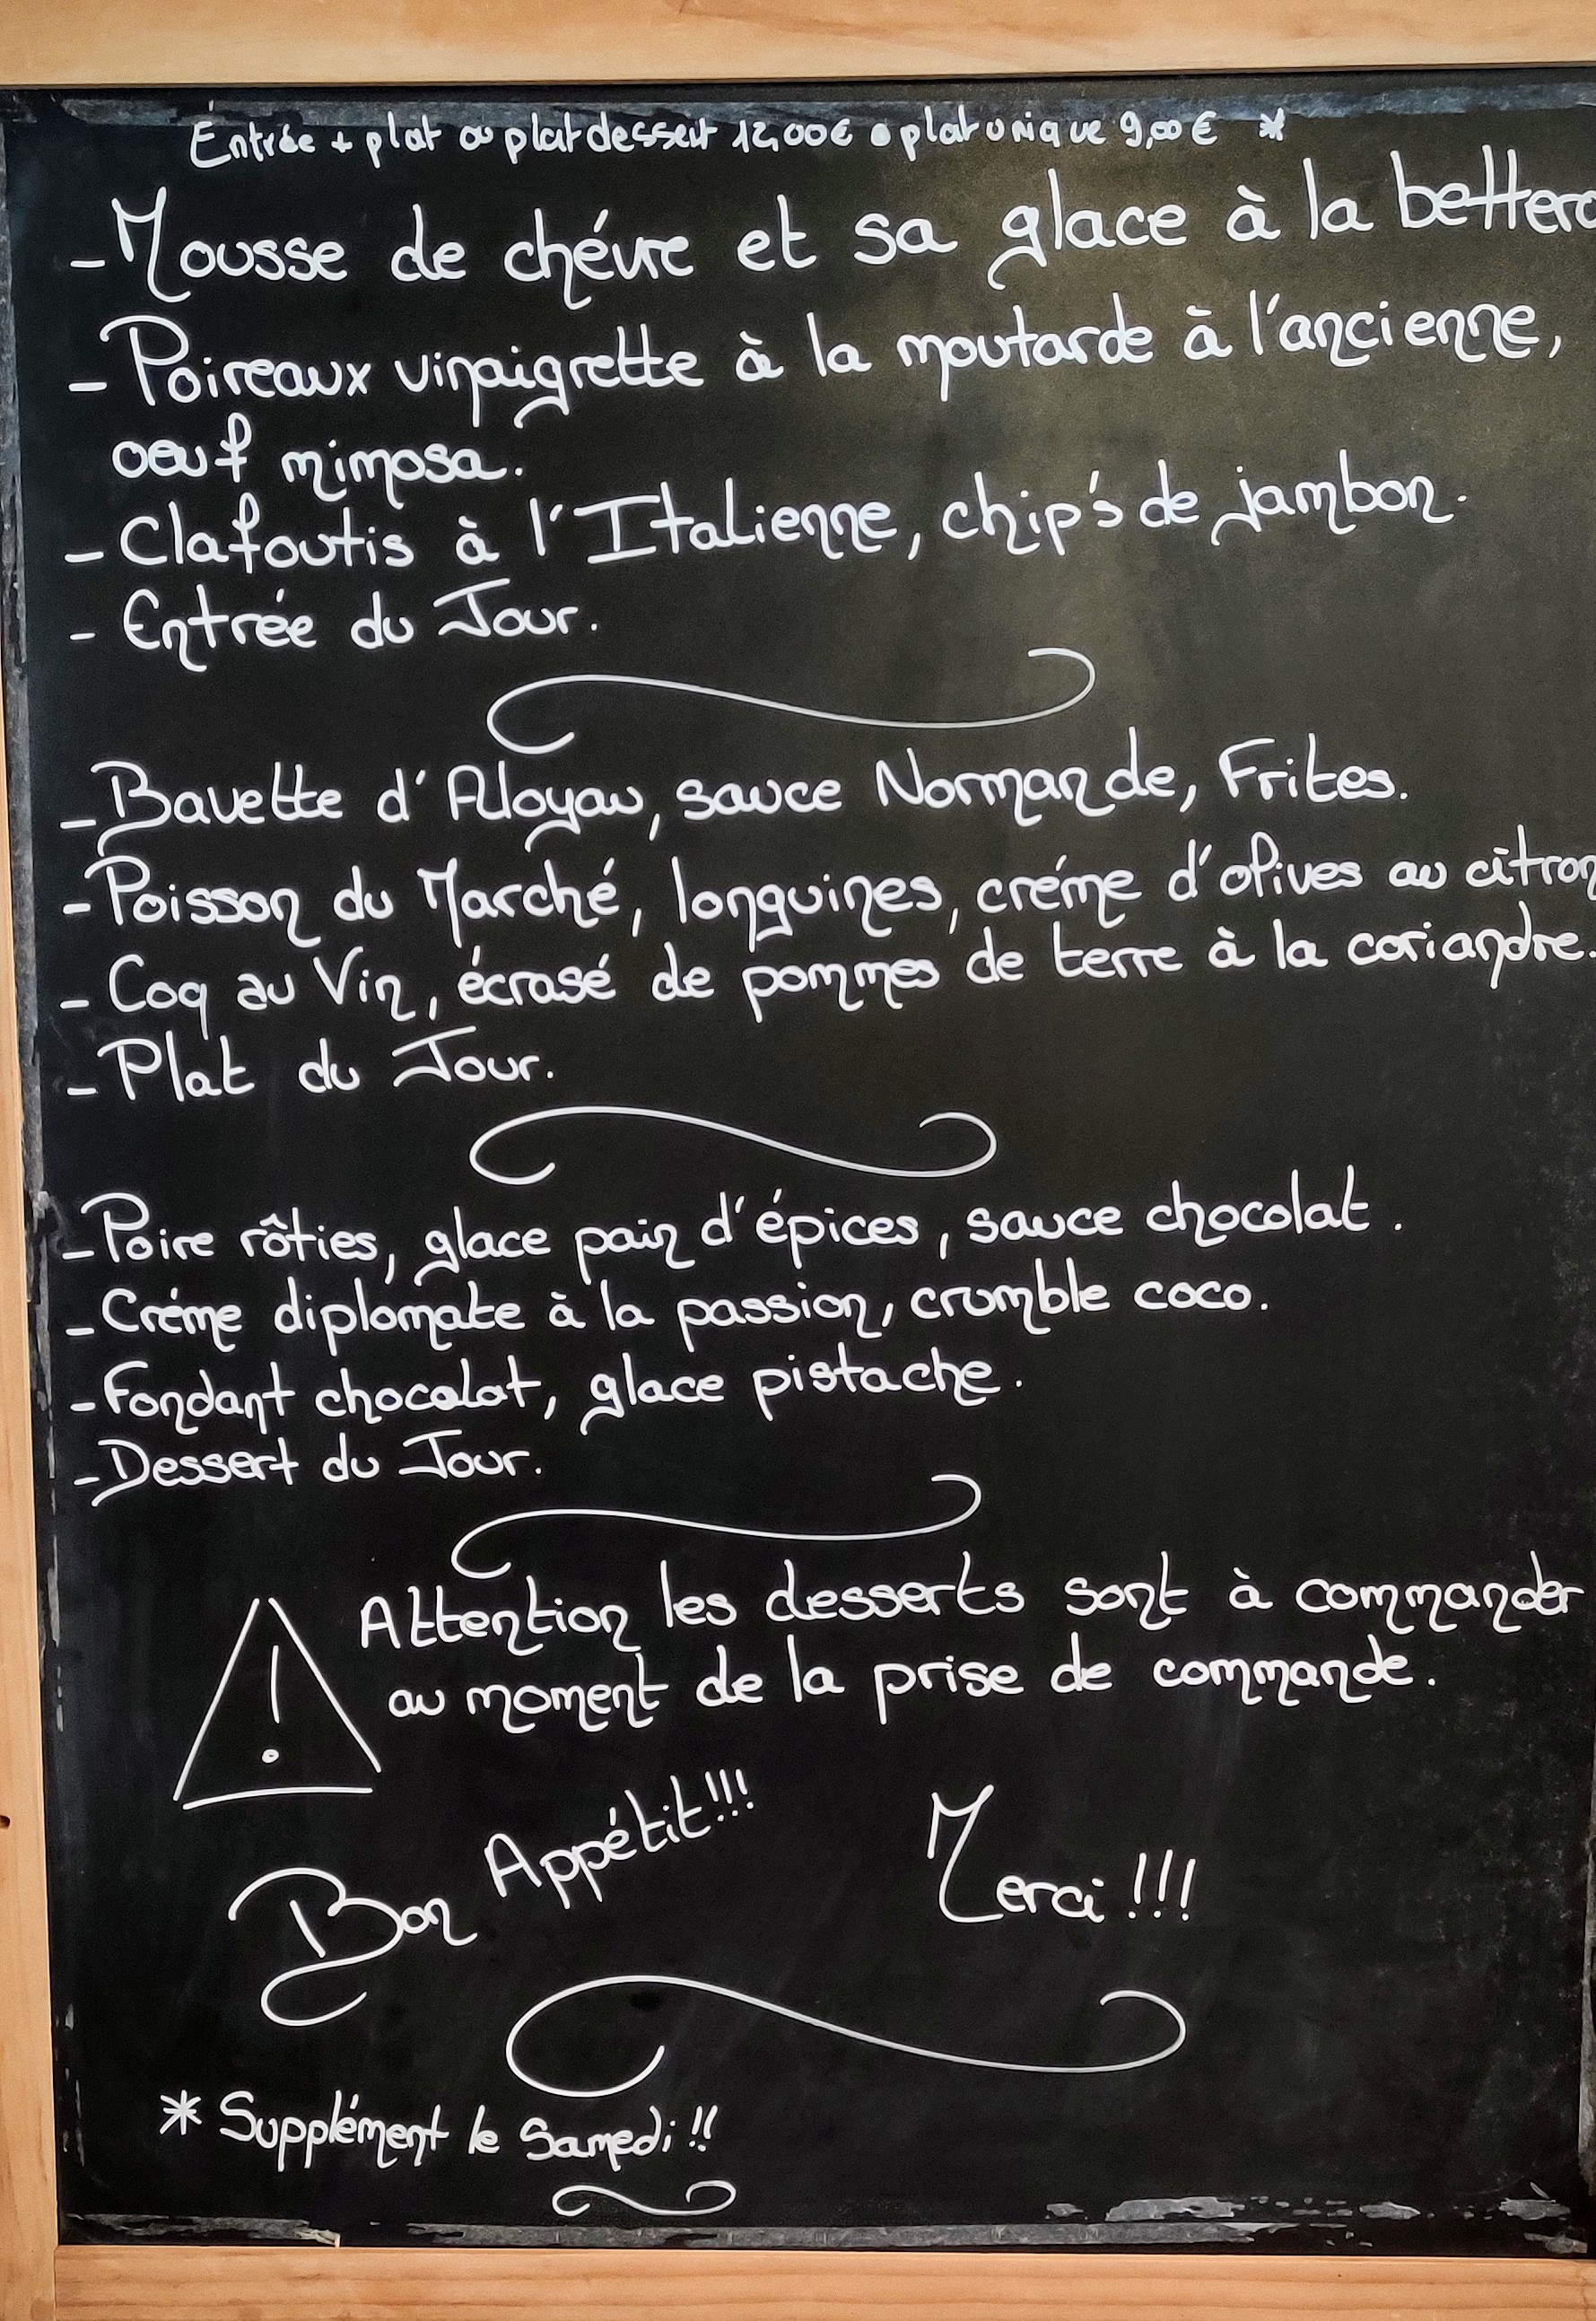 Entrée + plat ou plat dessert 12,00€ • plat unique 9,00€ *
- Mousse de chévre et sa glace à la better
- Poireaux vinaigrette à la moutarde à l'ancienne,
oeuf mimosa.
- Clafoutis à l'Italienne, chip's de jambon.
- Entrée du Jour.
- Bavette d'Aloyau, sauce Normande, Frites.
- Poisson du Marché, longuines, créme d'olives au citron
- Coq au Vin, écrasé de pommes de terre à la coriandre.
- Plat du Jour.
- Poire rôties, glace pain d'épices, sauce chocolat.
- Créme diplomate à la passion, crumble coco.
- Fondant chocolat, glace pistache.
- Dessert du Jour.
! Attention les desserts sont à commander
au moment de la prise de commande.
Bon Appétit!!! Merci!!!
* Supplément le Samedi!!